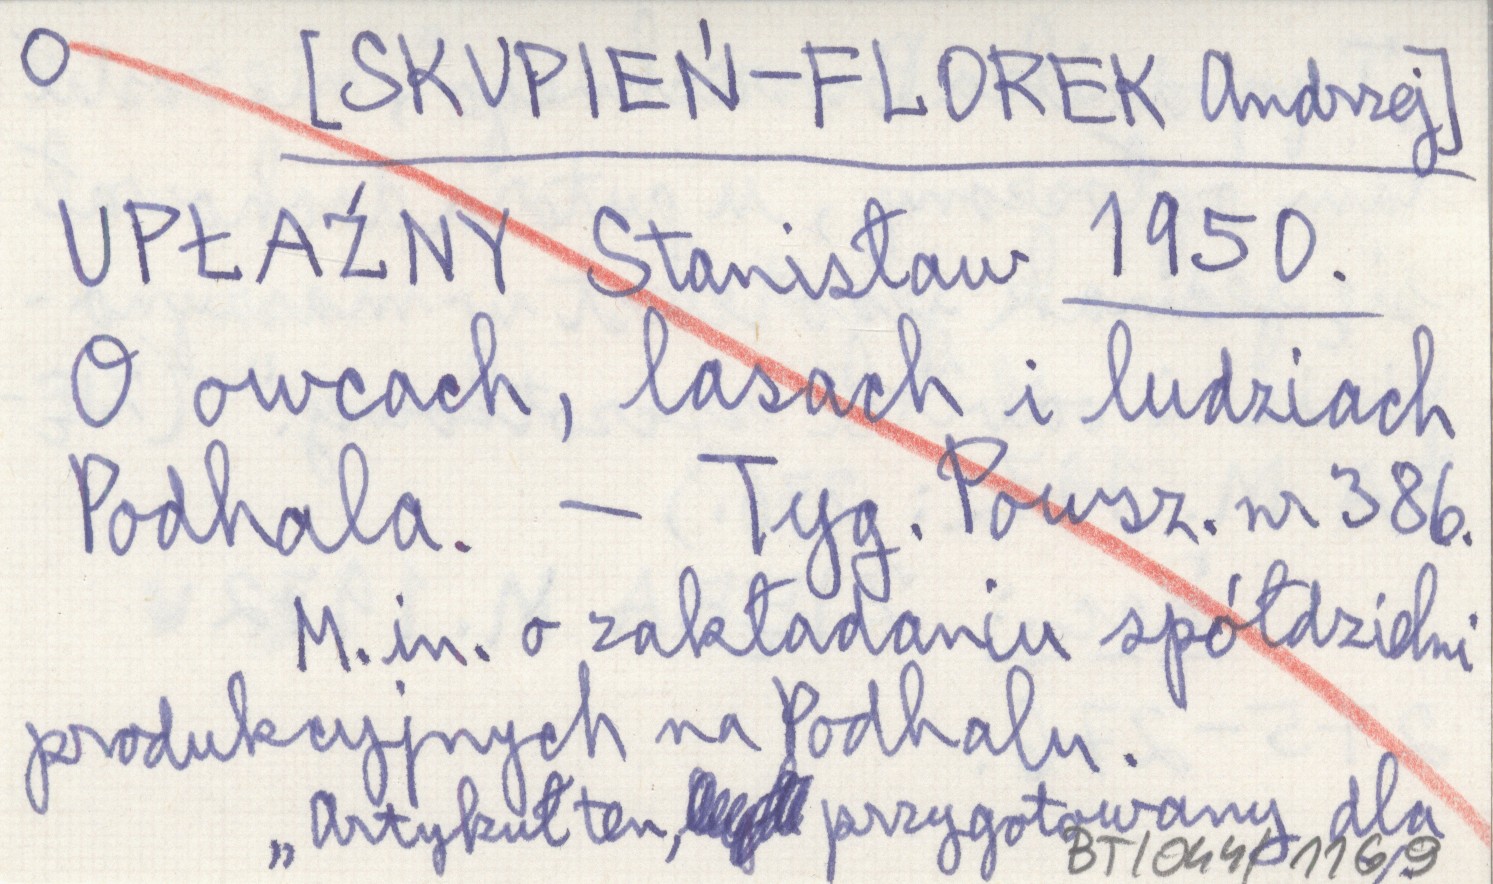 O [SKUPIEŃ-FLOREK Andrzej]
UPŁAŹNY Stanisław 1950.
O owcach, lasach i ludziach
Podhala. — Tyg. Powsz. nr 386.
M.in. o zakładaniu spółdzielni
produkcyjnych na Podhalu.
„Artykuł ten, przygotowany dla
BT/044/116/9